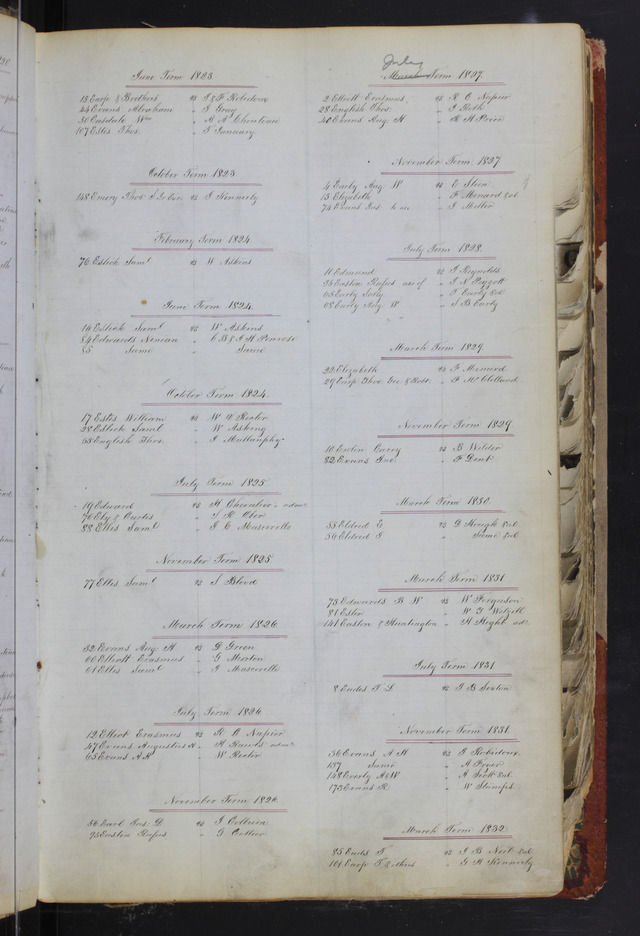 June Term 1823.
13 Earp & Brothers vs I & F Robidoux
24 Evans Abraham " S Gray
50 Easdale Wm " A A Chouteau
107 Ellis Thos. " T January
October Term 1823.
148 Emery Thos vs I Kennerly
February Term 1824.
76 Eslick Saml vs W Askins
June Term 1824.
16 Eslick Saml vs W Askins
84 Edwards Ninian " C B & I H Penrose
85 Same " Same
October Term 1824.
17 Estes William vs W V Rector
28 Eslick Saml " W Askins
53 English Thos. " I Mullanphy
July Term 1825
19 Edward vs H Chevalier
70 Ely & Curtis
88 Ellis Saml " I C Muservelle
November Term 1825
77 Ellis Saml vs S Blood
March Term 1826.
52 Evans Aug. H vs D Green
60 Elliott Erasmus " G Morton
61 Ellis Saml " I Muservelle
July Term 1826
12 Elliot Erasmus vs R C Napier
47 Evans Augustus H " H Rawls
65 Evans A H " W Rector
November Term 1826.
56 Earl Jas. D. vs I Colburn
93 Easton Rufus " G Collier
July
March Term 1827.
2 Elliott Erasmus, vs R C Napier
28 English Thos. " I Roth
40 Evans Aug. H " R H Price
November Term 1827
4 Early Aug. W vs E Steen
13 Elizabeth " F Menard
74 Evans Jas. " I Miller
July Term 1828.
11 Edmund vs T Reynolds
36 Easton Rufus use of " I N Peycott
65 Early Polly " T Early
68 Early Aug. W " S B Eardy
March Term 1829.
22 Elizabeth vs F Menard
29 Earp Thos Geo & Robt. " I McClelland
November Term 1829.
10 Easton Carey vs B Wilder
82 Evans Jno. " F Dent
March Term 1830
55 Eldred E vs D Hough
56 Eldred I " Same
March Term 1831
73 Edwards B W vs W Ferguson
81 Ester
141 Easton & Huntington " H Hight
July Term 1831
8 Eades T L vs I B Sexton
November Term 1831
56 Evans A H vs I Robidoux
137 Same " A Pryor
148 Everly A & W " A Scott
173 Evans R " W Stumps
March Term 1832
85 Eads T vs I B Neil
101 Earp T & others " G H Kennerly